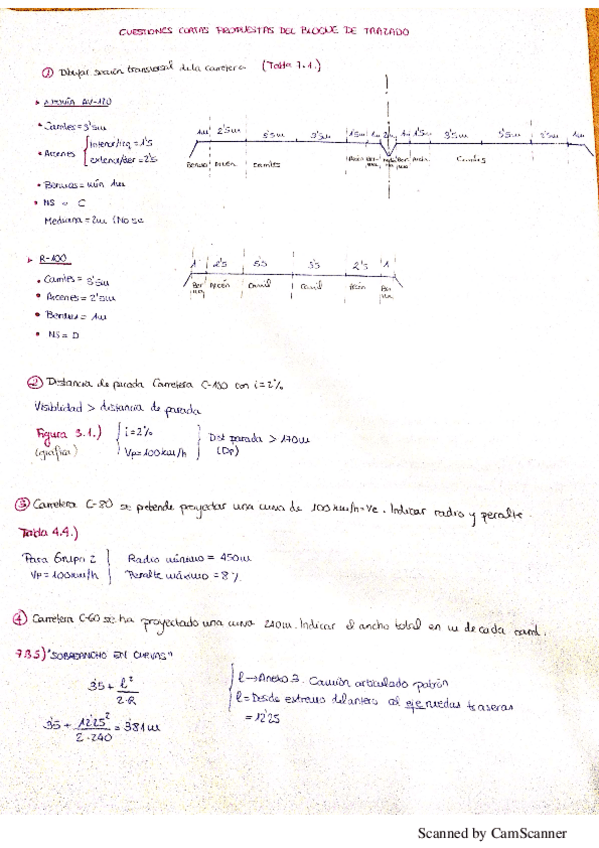 CUESTIONES CORTAS PROPUESTAS DEL BLOQUE DE TRAZADO
① Dibujar sección transversal de la carretera (Tabla 7.1.)
AV-120
• Carriles = 3'5m
• Arcenes { interior/izq = 1'5
exterior/der = 2'5
• Bermas = mín 1m
• NS = C
Mediana = 2m (No se
1m 2'5m 3'5m 3'5m 1'5m 1m 2m 1m 1'5m 3'5m 3'5m 1m
Berma Arcén Carriles Arcén Arcén Carriles
R-100
• Carriles = 3'5m
• Arcenes = 2'5m
• Bermas = 1m
• NS = D
1 2'5 3'5 3'5 2'5 1
Berma Arcén Carril Carril Arcén Berma
② Distancia de parada Carretera C-100 con i = 2%
Visibilidad > distancia de parada
Figura 3.1.) { i = 2%
(gráfica) Vp = 100km/h } Dist parada > 170m
(Dp)
③ Carretera C-80 se pretende proyectar una curva de 100km/h = Ve. Indicar radio y peralte.
Tabla 4.4.)
Para Grupo 2 | Radio mínimo = 450m
Vp = 100km/h | Peralte máximo = 8%
④ Carretera C-60 se ha proyectado una curva 240m. Indicar el ancho total en m de cada carril.
7.3.5) "SOBREANCHO EN CURVAS"
3'5 + l²/2·R
l → Anexo 3. Camión articulado patrón
l = Desde extremo delantero al eje ruedas traseras
= 12'25
3'5 + 12'25²/2·240 = 3'81m
Scanned by CamScanner